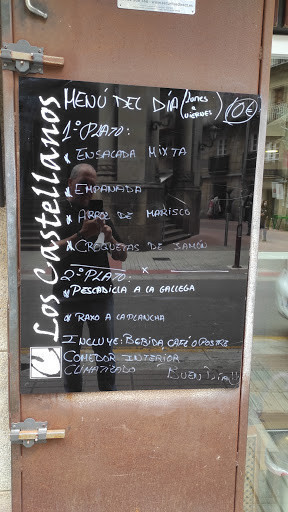 Los Castellanos
MENÚ DEL DÍA (LUNES A VIERNES) 10€
1º PLATO:
* ENSALADA MIXTA
* EMPANADA
* ARROZ DE MARISCO
* CROQUETAS DE JAMÓN
2º PLATO: x
* PESCADILLA A LA GALLEGA
* RAXO A LA PLANCHA
INCLUYE: BEBIDA CAFÉ O POSTRE
COMEDOR INTERIOR
CLIMATIZADO BUEN DÍA!!